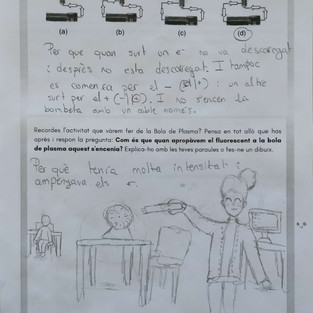 (a) (b) (c) (d)
Per que quan surt un e⁻ no va descaregat
i després no esta descaregat. I tampoc
es comença per el - (-|+) i un altre
surt per el + (-|+). I no s'encen la
bombeta amb un cable només.
Recordes l'activitat que vàrem fer de la Bola de Plasma? Pensa en tot allò que has
après i respon la pregunta: Com és que quan apropàvem el fluorescent a la bola
de plasma aquest s'encenia? Explica-ho amb les teves paraules o fes-ne un dibuix.
Per què tenia molta intensitat i
els e⁻.